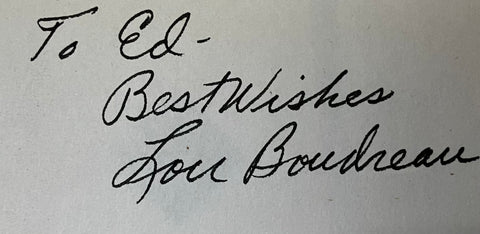 To Ed-
Best Wishes
Lou Boudreau